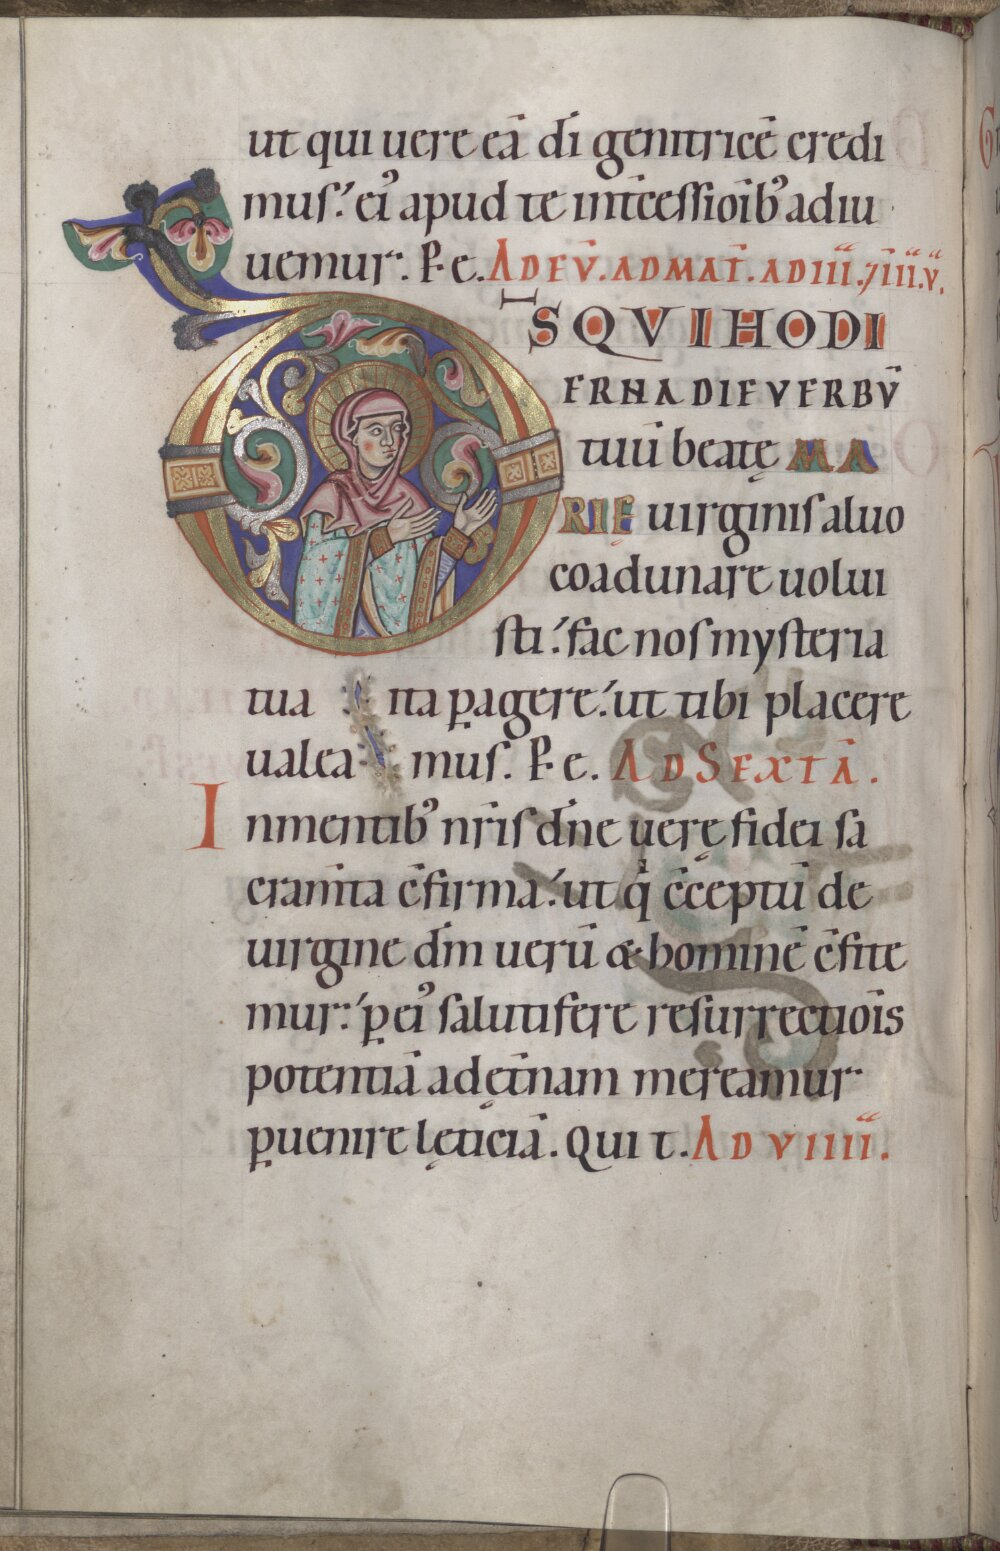 ut qui uere eā dī genitricē credi
mus.' ei᾿ apud te int̄cessioīb᾿ adiu
uemur. P. e. AD EV̄. AD MAT̄. AD III. 7 IIII. V.
D̄S QVI HODI
ERNA DIE VERBV̄
tuū beatę MA
RIĘ uirginis aluo
coadunare uolui
sti.' fac nos mysteria
tua ita ꝑagere.' ut tibi placere
ualeamus. P. e. AD SEXTĀ.
In mentib᾿ nr̄is dn̄e uerę fidei sa
cram̄ta c̄firma.' ut q̇ c̄ceptū de
uirgine dm̄ uerū & hominē c̄fite
mur.' ꝑ ei᾿ salutifere resurrectiōis
potentiā ad ęt̄nam mereamur
ꝑuenire lęticiā. Qui t. AD VIIII.